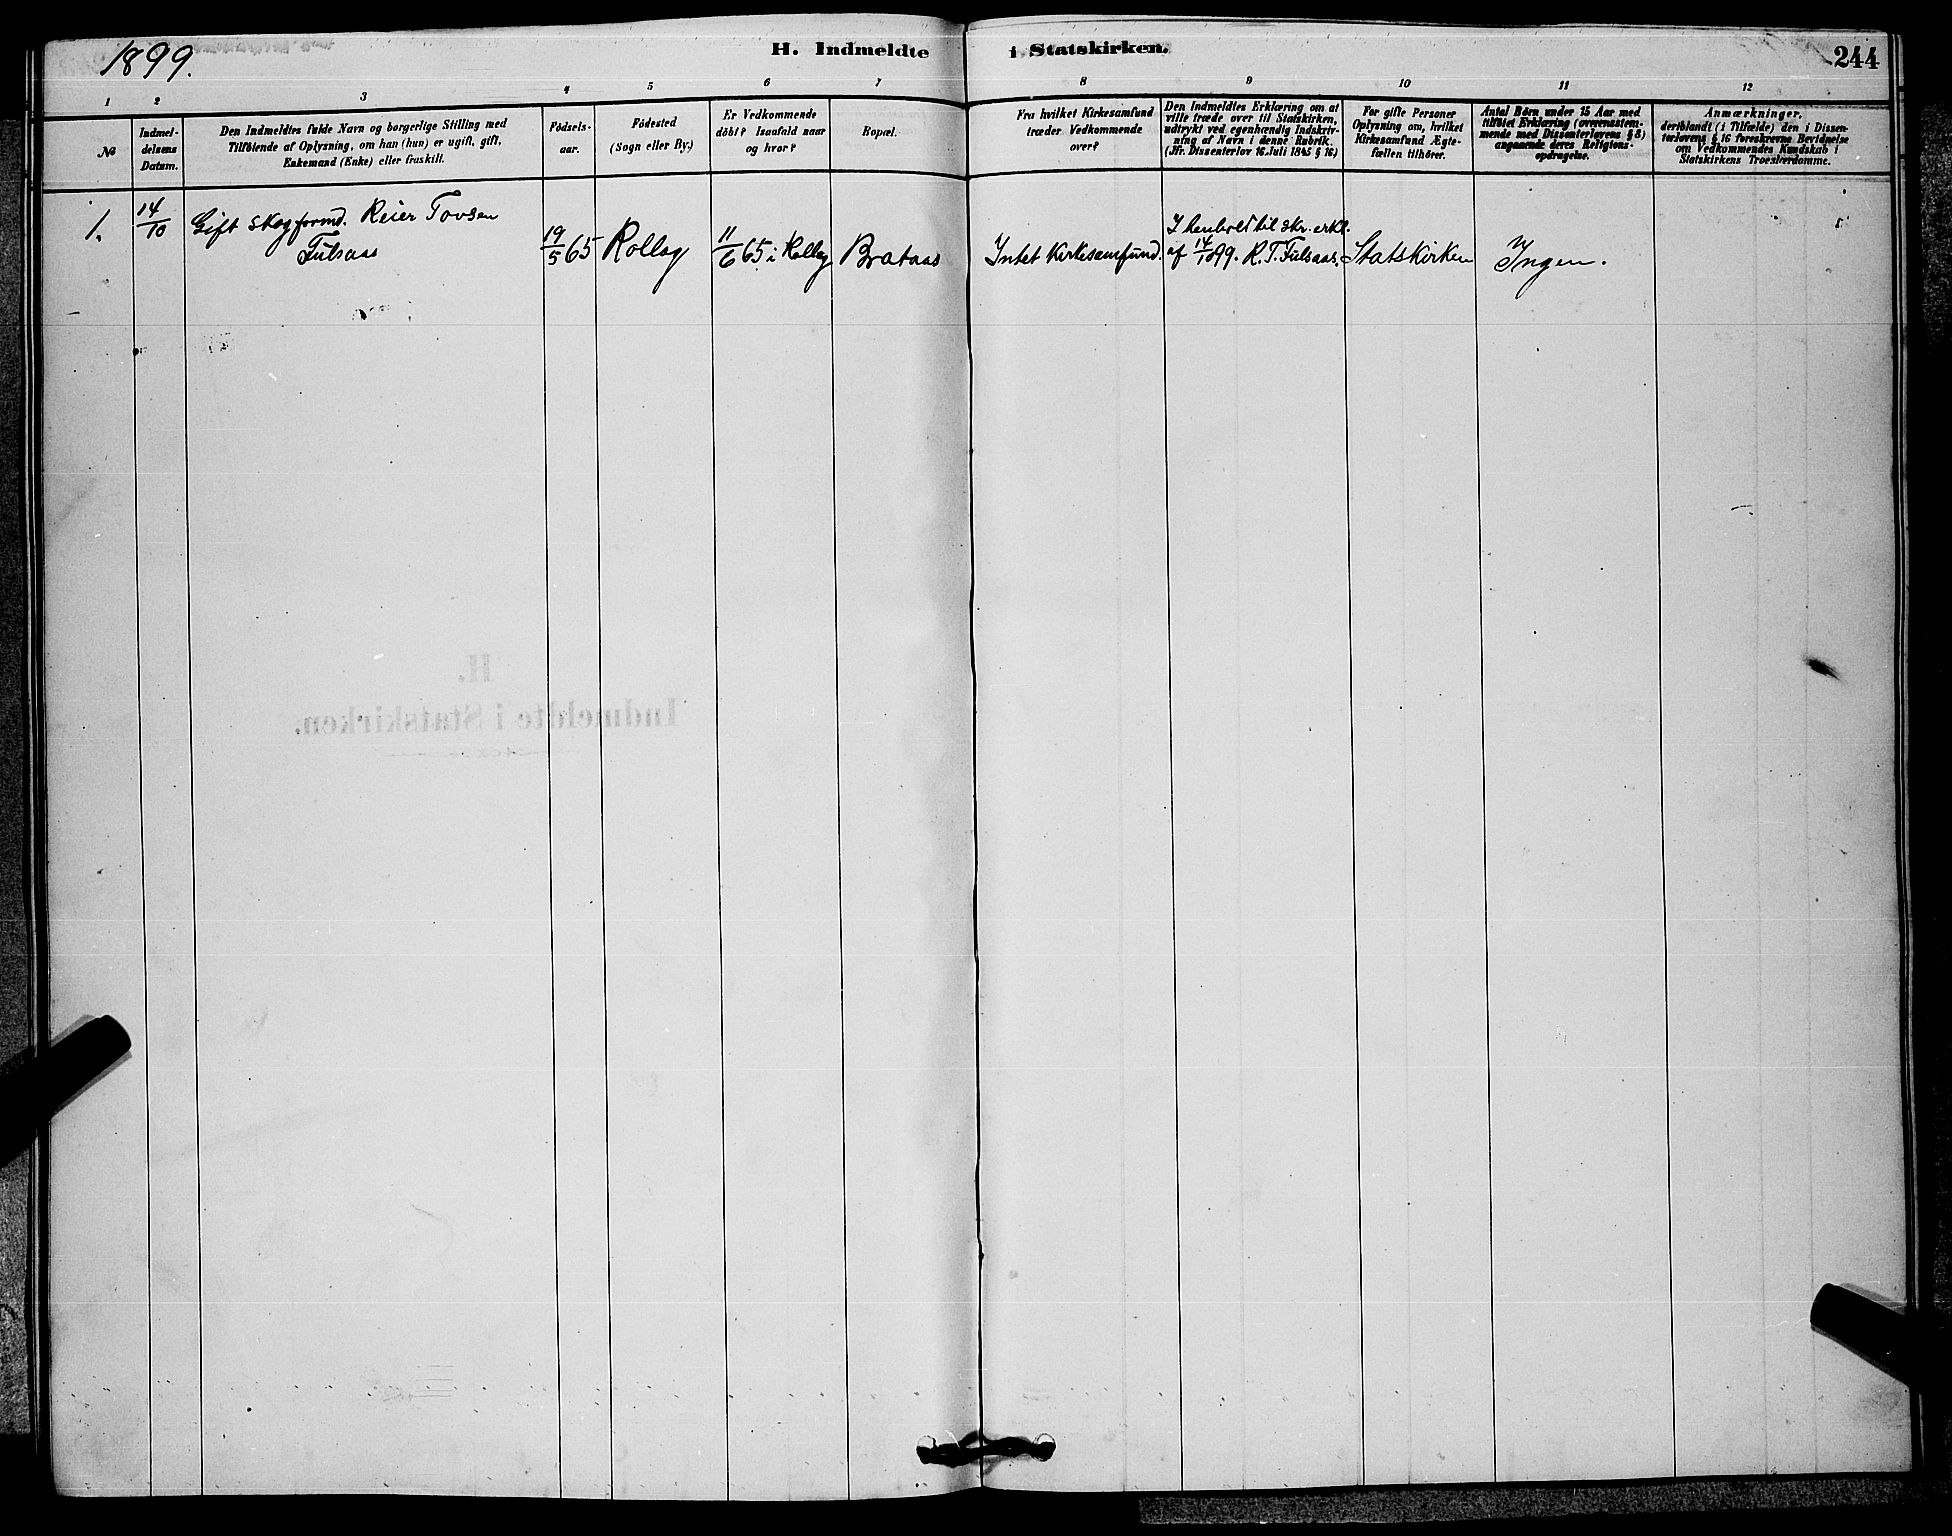 1899.
H. Indmeldte i Statskirken.
244
1 2 3 4 5 6 7 8 9 10 11 12
No
Indmel-
delsens
Datum.
Den Indmeldtes fulde Navn og borgerlige Stilling med
Tilföiende af Oplysning, om han (hun) er ugift, gift,
Enkemand (Enke) eller fraskilt.
Födsels-
aar.
Födested
(Sogn eller By.)
Er Vedkommende
döbt? Isaafald naar
og hvor?
Bopæl.
Fra hvilket Kirkesamfund
træder Vedkommende
over?
Den Indmeldtes Erklæring om at
ville træde over til Statskirken,
udtrykt ved egenhændig Indskriv-
ning af Navn i denne Rubrik.
(Jfr. Dissenterlov 16. Juli 1845 § 16.)
For gifte Personer
Oplysning om, hvilket
Kirkesamfund Ægte-
fællen tilhörer.
Antal Börn under 15 Aar med
tilföiet Erklæring (overensstem-
mende med Dissenterlovens § 8)
angaaende deres Religions-
opdragelse.
Anmærkninger,
deriblandt (i Tilfælde) den i Dissen-
terlovens § 16 foreskrevne Bevidnelse
om Vedkommendes Kundskab i
Statskirkens Troeslærdomme.
1.
14/10
Gift Skogformd. Reier Tovsen
Fulsaas
19/5 65
Rollag
11/6 65 i Rollag
Brataas
Intet Kirkesamfund.
I henhold til skr. erkl.
af 14/10 99. R. T. Fulsaas.
Statskirken
Ingen.
H.
Indmeldte i Statskirken.